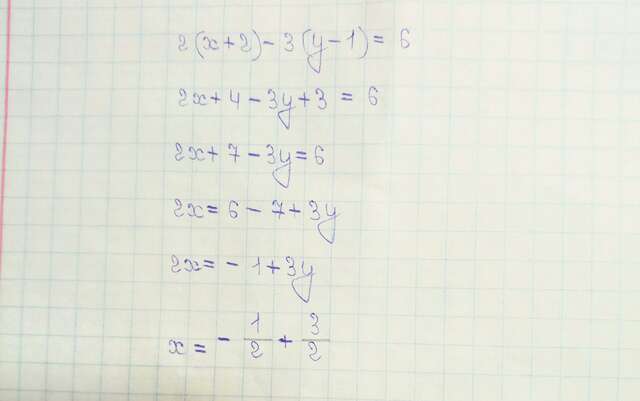 2(x+2)-3(y-1)=6
2x+4-3y+3=6
2x+7-3y=6
2x=6-7+3y
2x=-1+3y
x=-1/2+3/2